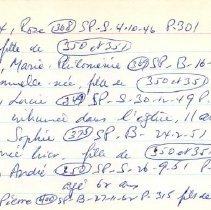 , Rose 308 SP-S-4-10-46 P-301
fille de 350 et 351
, Marie-Philomène SP-B-16-
nouvelle-née, fille de 350 et 351
, Lucie SP-S-30-10-49 P-
inhumée dans l'église, 11 a
, Sophie 375 SP-B-24-2-51
née hier, fille de 350 et 351
André 350 SP-S-26-9-51 P-
agé 62 ans
Pierre SP-B-27-11-62 P-315 fils de